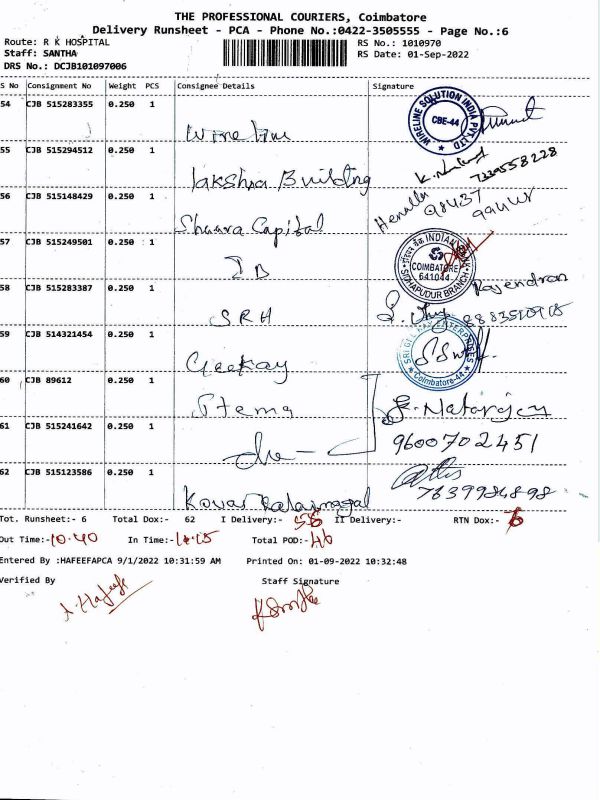 THE PROFESSIONAL COURIERS, Coimbatore
Delivery Runsheet - PCA - Phone No.:0422-3505555 - Page No.:6
Route: R K HOSPITAL
RS No.: 1010970
Staff: SANTHA
RS Date: 01-Sep-2022
DRS No.: DCJB101097006
S No Consignment No Weight PCS Consignee Details Signature
54 CJB 515283355 0.250 1
WIRELINE SOLUTION INDIA PVT.LTD
CBE-44
55 CJB 515294512 0.250 1
lakshna Building
7339558228
56 CJB 515148429 0.250 1
Shaara Capital
98437
57 CJB 515249501 0.250 1
IB
INDIAN
COIMBATORE
641044
SIDHAPUDUR BRANCH
58 CJB 515283387 0.250 1
SRH
Rajendran
59 CJB 514321454 0.250 1
Geekay
ENTERPRISES
Coimbatore-44
60 CJB 89612 0.250 1
Stema
K. Natarajan
61 CJB 515241642 0.250 1
do
9600702451
62 CJB 515123586 0.250 1
Kovai
7639984898
Tot. Runsheet:- 6 Total Dox:- 62 I Delivery:- 56 II Delivery:- RTN Dox:- 6
Out Time:- 10.40 In Time:- Total POD:- 46
Entered By :HAFEEFAPCA 9/1/2022 10:31:59 AM Printed On: 01-09-2022 10:32:48
Verified By Staff Signature
A. Hafeefa